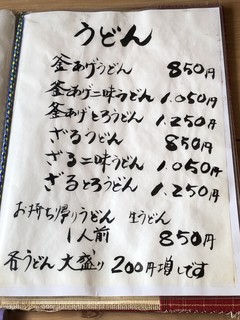 うどん
釜あげうどん 850円
釜あげ二味うどん 1.050円
釜あげとろうどん 1.250円
ざるうどん 850円
ざる二味うどん 1.050円
ざるとろうどん 1.250円
お持ち帰りうどん 生うどん
1人前 850円
各うどん大盛り 200円増しです